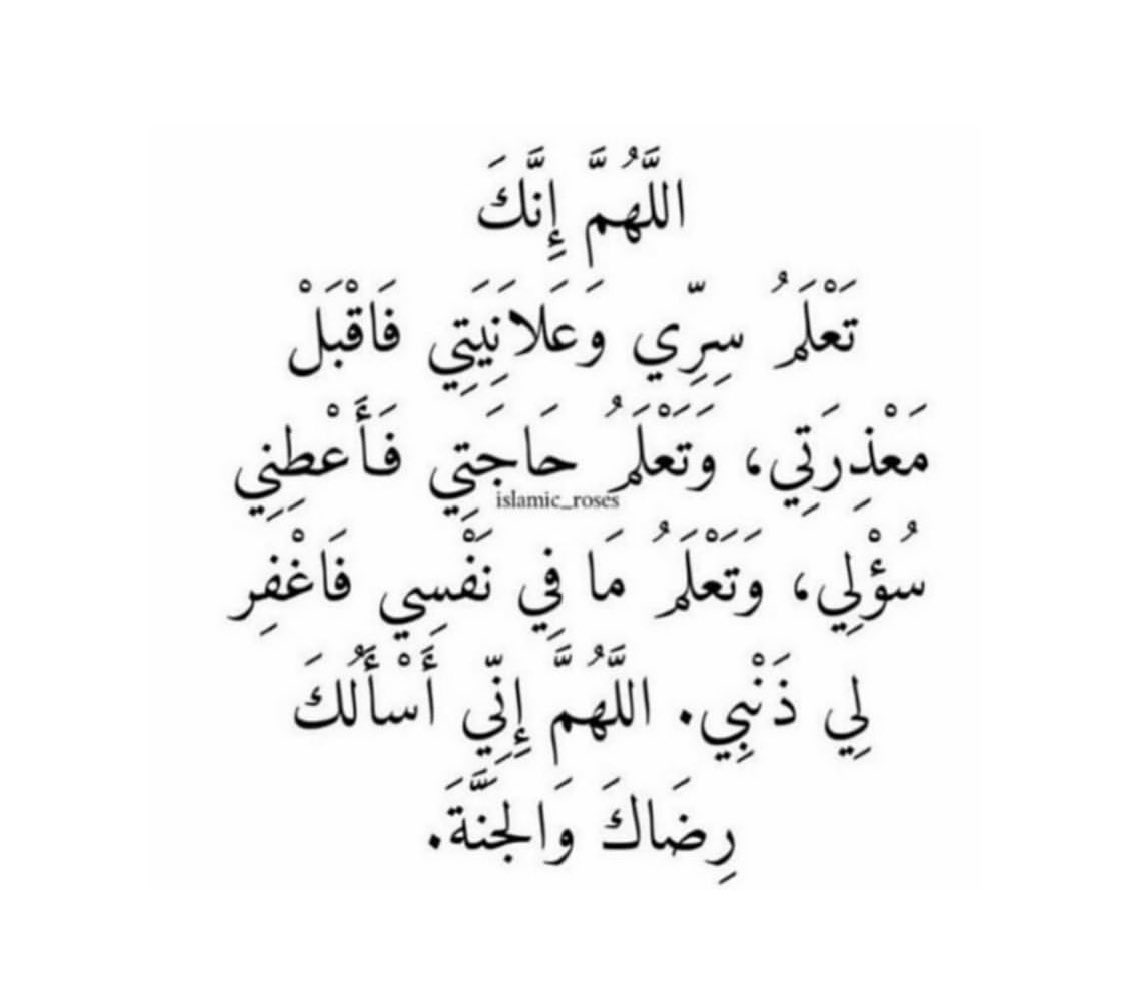 اللَّهُمَّ إِنَّكَ
تَعْلَمُ سِرِّي وَعَلَانِيَتِي فَاقْبَلْ
مَعْذِرَتِي، وَتَعْلَمُ حَاجَتِي فَأَعْطِنِي
islamic_roses
سُؤْلِي، وَتَعْلَمُ مَا فِي نَفْسِي فَاغْفِر
لِي ذَنْبِي. اللَّهُمَّ إِنِّي أَسْأَلُكَ
رِضَاكَ وَالجَنَّةَ.